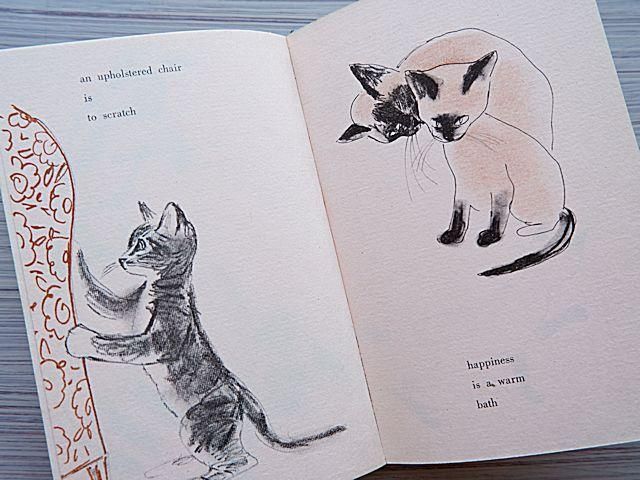 an upholstered chair
is
to scratch
happiness
is a warm
bath